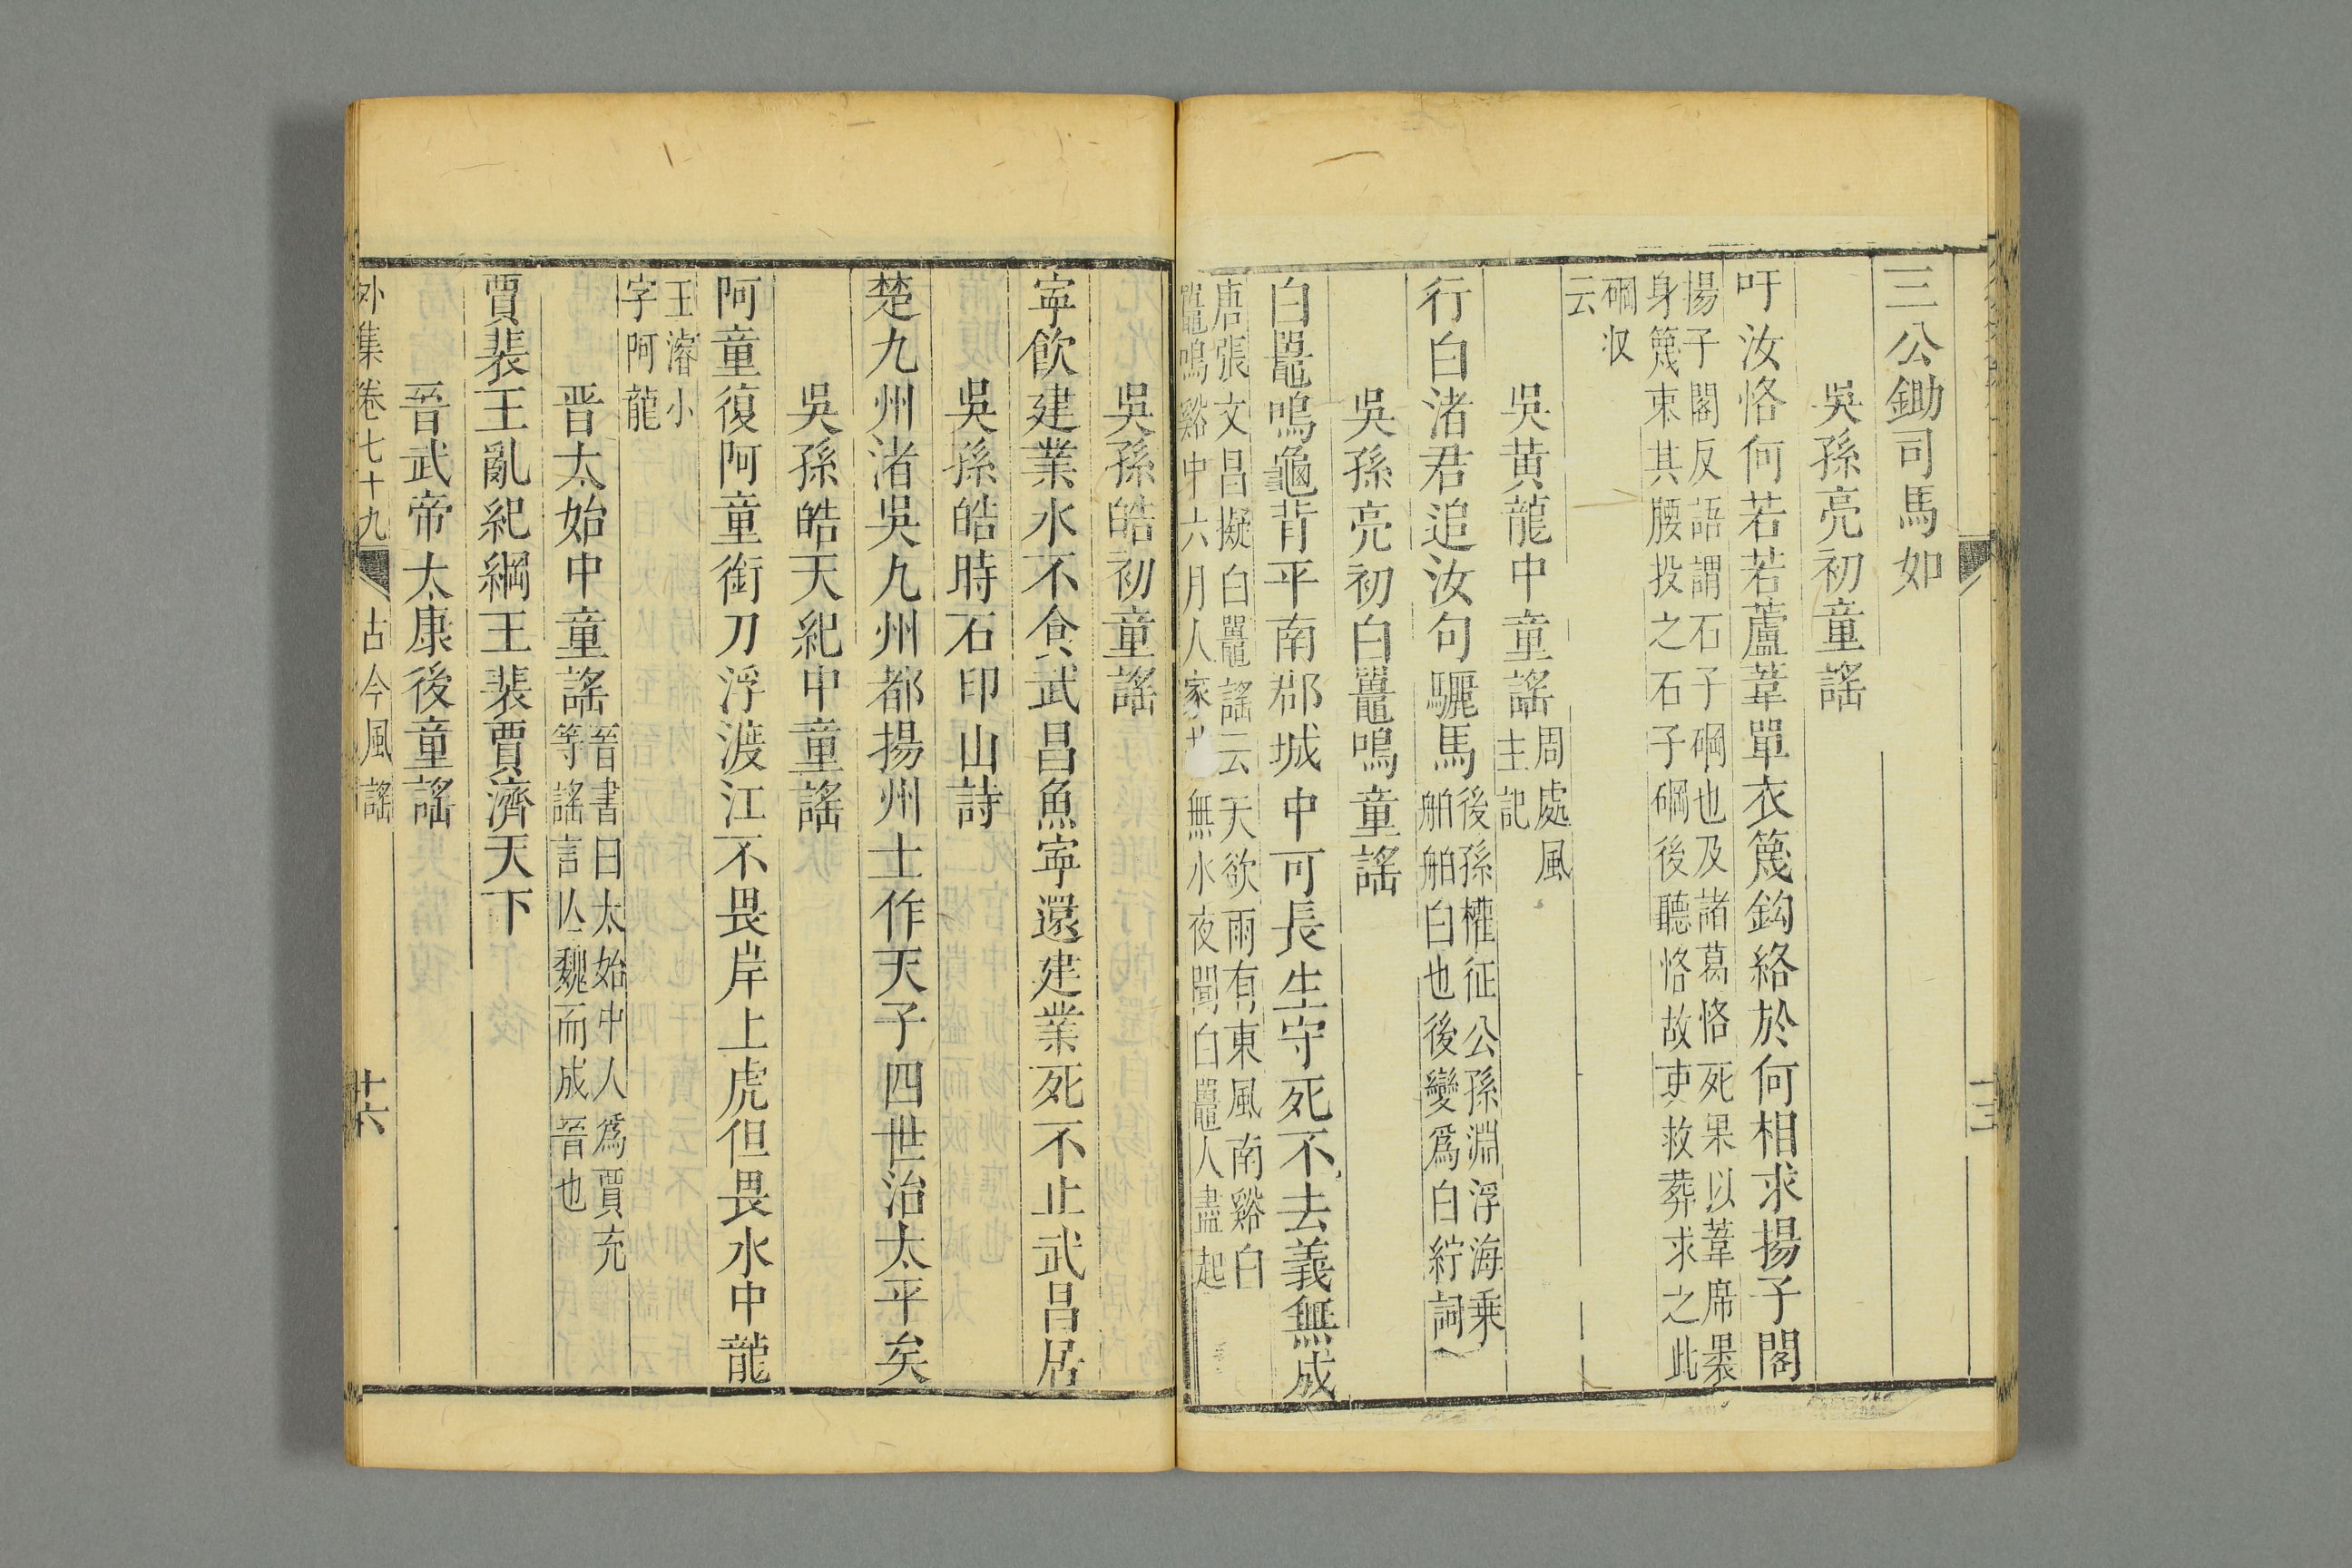 三公鋤司馬如
吳孫亮初童謠
吁汝恪何若若蘆葦單衣篾鈎絡於何相求揚子閣
揚子閣反語謂石子碙也及諸葛恪死果以葦席褁
身篾束其腰投之石子碙後聽恪故吏救葬求之此
碙収
云
吳黃龍中童謠周處風
主記
行白渚君追汝句驪馬後孫權征公孫淵浮海乗
舶舶白也後變爲白紵詞
吳孫亮初白鼉鳴童謠
白鼉鳴龜背平南郡城中可長生守死不去義無成
唐張文昌擬白鼉謠云天欲雨有東風南谿白
鼉鳴谿中六月人家無水夜聞白鼉人盡起
吳孫皓初童謠
寧飲建業水不食武昌魚寧還建業死不止武昌居
吳孫皓時石印山詩
楚九州渚吳九州都揚州士作天子四世治太平矣
吳孫皓天紀中童謠
阿童復阿童銜刀浮渡江不畏岸上虎但畏水中龍
王濬小
字阿龍
晋太始中童謠晉書曰太始中人爲賈充
等謠言亾魏而成晉也
賈裴王亂紀綱王裴賈濟天下
晉武帝太康後童謠
外集卷七十九 古今風謠 十六